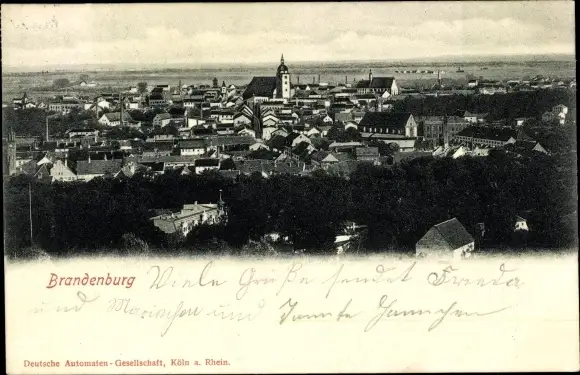 Brandenburg Viele Grüße sendet Frieda
und Mariechen und Tante Hannchen
Deutsche Automaten-Gesellschaft, Köln a. Rhein.